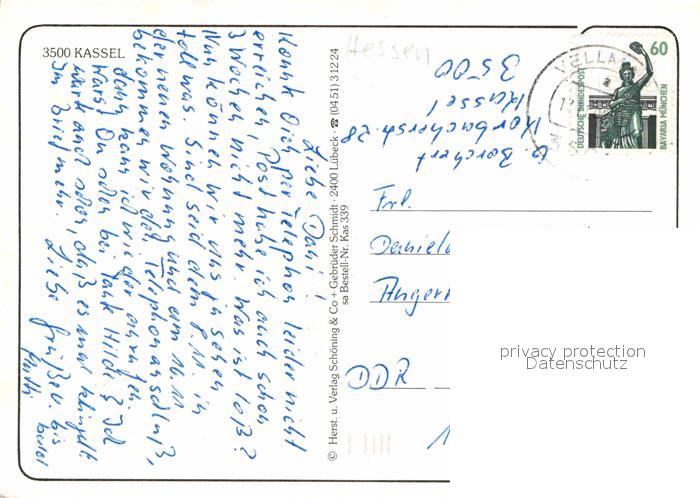 3500 KASSEL
Hessen
VELLMAR
60
DEUTSCHE BUNDESPOST
BAVARIA MÜNCHEN
Liebe Dani!
Konnte Dich per Telephon leider nicht
erreichen, Post habe ich auch schon
3 Wochen nicht mehr. Was ist loß?
Nun können wir uns ja sehen
toll was. Sind seid dem 8.11 in
der neuen Wohnung und am 16.11
bekommen wir den Telephonanschluß,
dann kann ich wieder anrufen.
Wars Du schon bei Tante Hilde? Ich
warte schon, daß es mal klingelt
Im Brief mehr. Liebe Grüße bis
bald
© Herst. u. Verlag Schöning & Co + Gebrüder Schmidt · 2400 Lübeck · ☎ (04 51) 3 12 24
sa Bestell-Nr. Kas 339
b Borchert
Korbacherstr. 28
Kassel
3500
Frl.
Daniel
Anger
DDR
1
privacy protection
Datenschutz